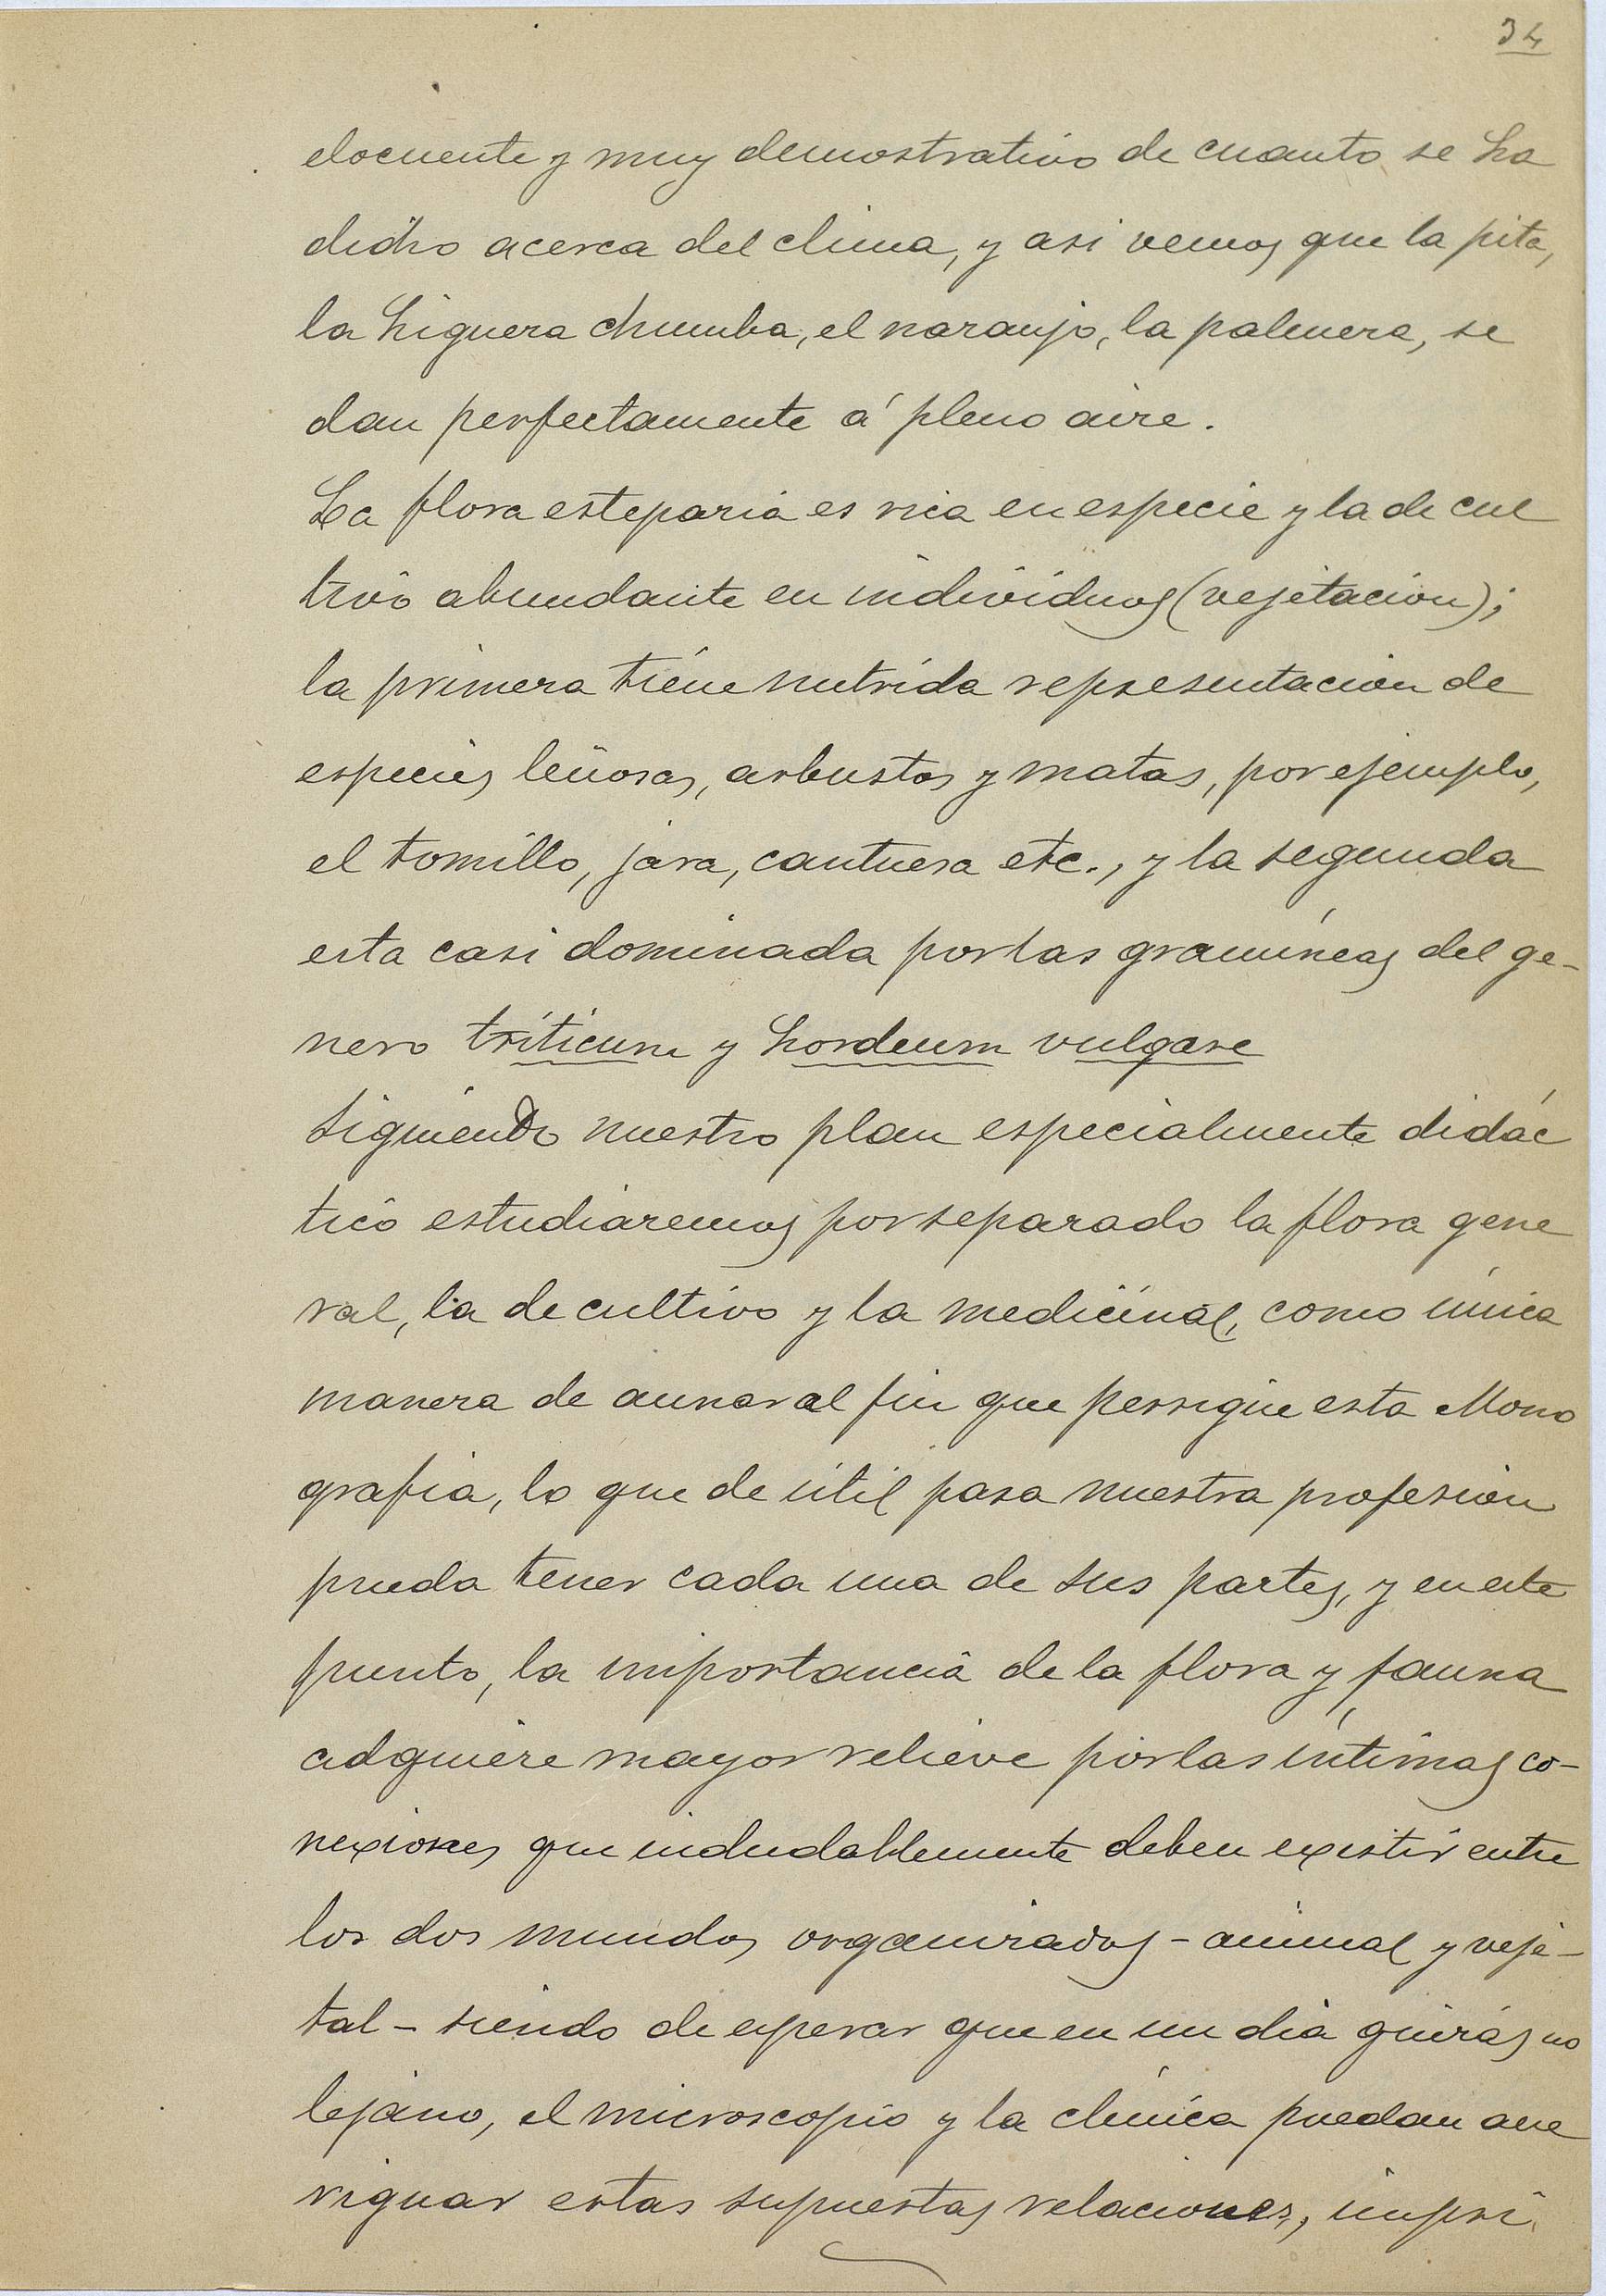 34
elocuente y muy demostrativo de cuanto se ha
dicho acerca del clima, y asi vemos que la pita,
la higuera chumba, el naranjo, la palmera, se
dan perfectamente á pleno aire.
La flora esteparia es rica en especie y la de cul
tivo abundante en individuos (vejetacion);
la primera tiene nutrida representacion de
especies leñosas, arbustos y matas, por ejemplo,
el tomillo, jara, cantuesa etc., y la segunda
esta casi dominada por las gramíneas del ge-
nero triticum y hordeum vulgare
Siguiendo nuestro plan especialmente didác
tico estudiaremos por separado la flora gene
ral, la de cultivo y la medicinal, como única
manera de aunar al fin que persigue esta Mono
grafia, lo que de útil para nuestra profesion
pueda tener cada una de sus partes, y en este
punto, la importancia de la flora y fauna
adquiere mayor relieve por las íntimas co-
nexiones que indudablemente deben existir entre
los dos mundos organizados - animal y veje-
tal - siendo de esperar que en un dia quizás no
lejano, el microscopio y la clínica puedan ave
riguar estas supuestas relaciones, impri